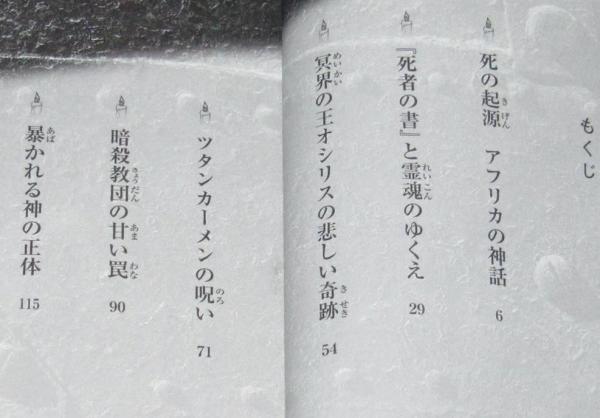 もくじ
死の起源 アフリカの神話 6
『死者の書』と霊魂のゆくえ 29
冥界の王オシリスの悲しい奇跡 54
ツタンカーメンの呪い 71
暗殺教団の甘い罠 90
暴かれる神の正体 115